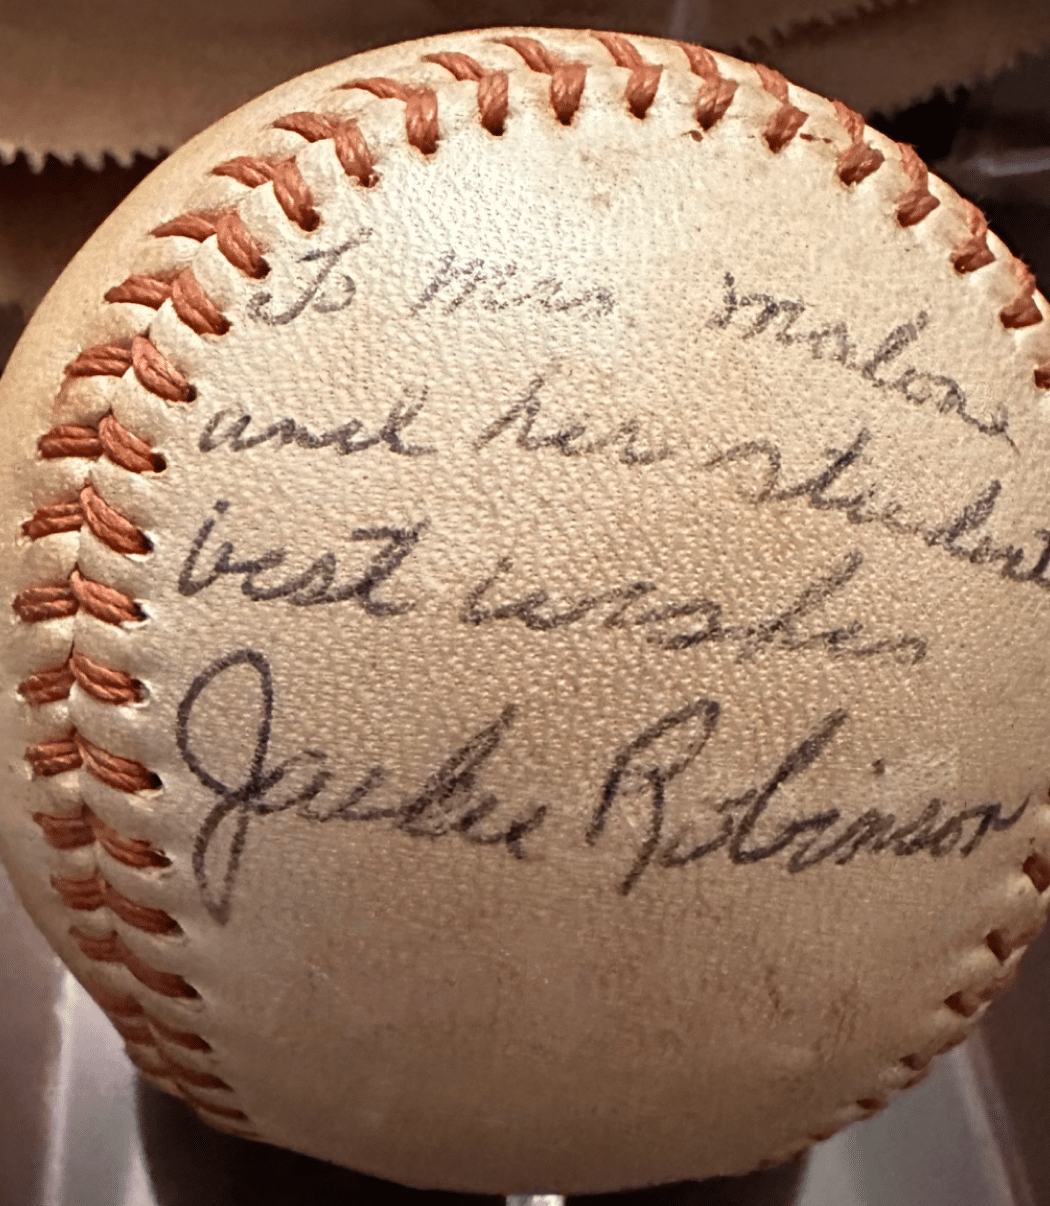 To Mrs Malone
and her student
best wishes
Jackie Robinson